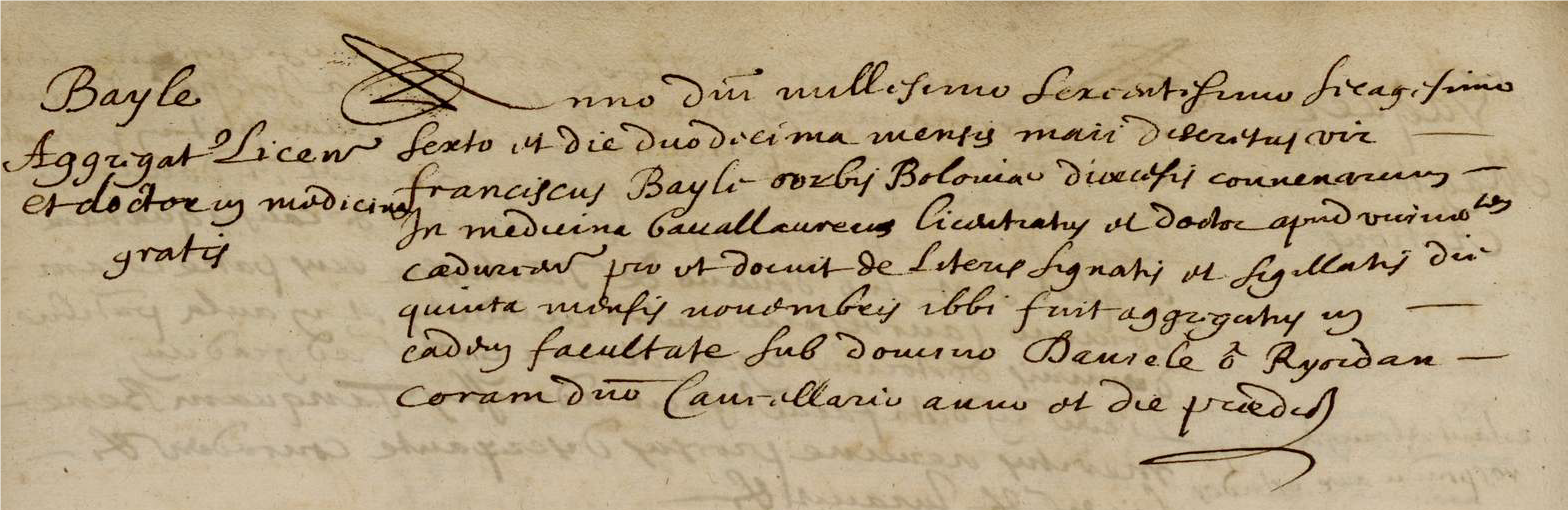 Bayle
Aggregat⁹ Licen
et doctor in medicina
gratis
Anno dñi millesimo sexcentesimo sexagesimo
sexto et die duodecima mensis maii discretus vir
franciscus Bayle orbis Boloniae diocesis convenarum
In medicina bacallaureus licentiatus et doctor apud universitates
cadurcen pro ut docuit de Literis signatis et sigillatis die
quinta mensis novembris ibbi fuit aggregatus in
eadem facultate sub domino Daniele ô Ryordan
Coram dño Cancellario anno et die prædict